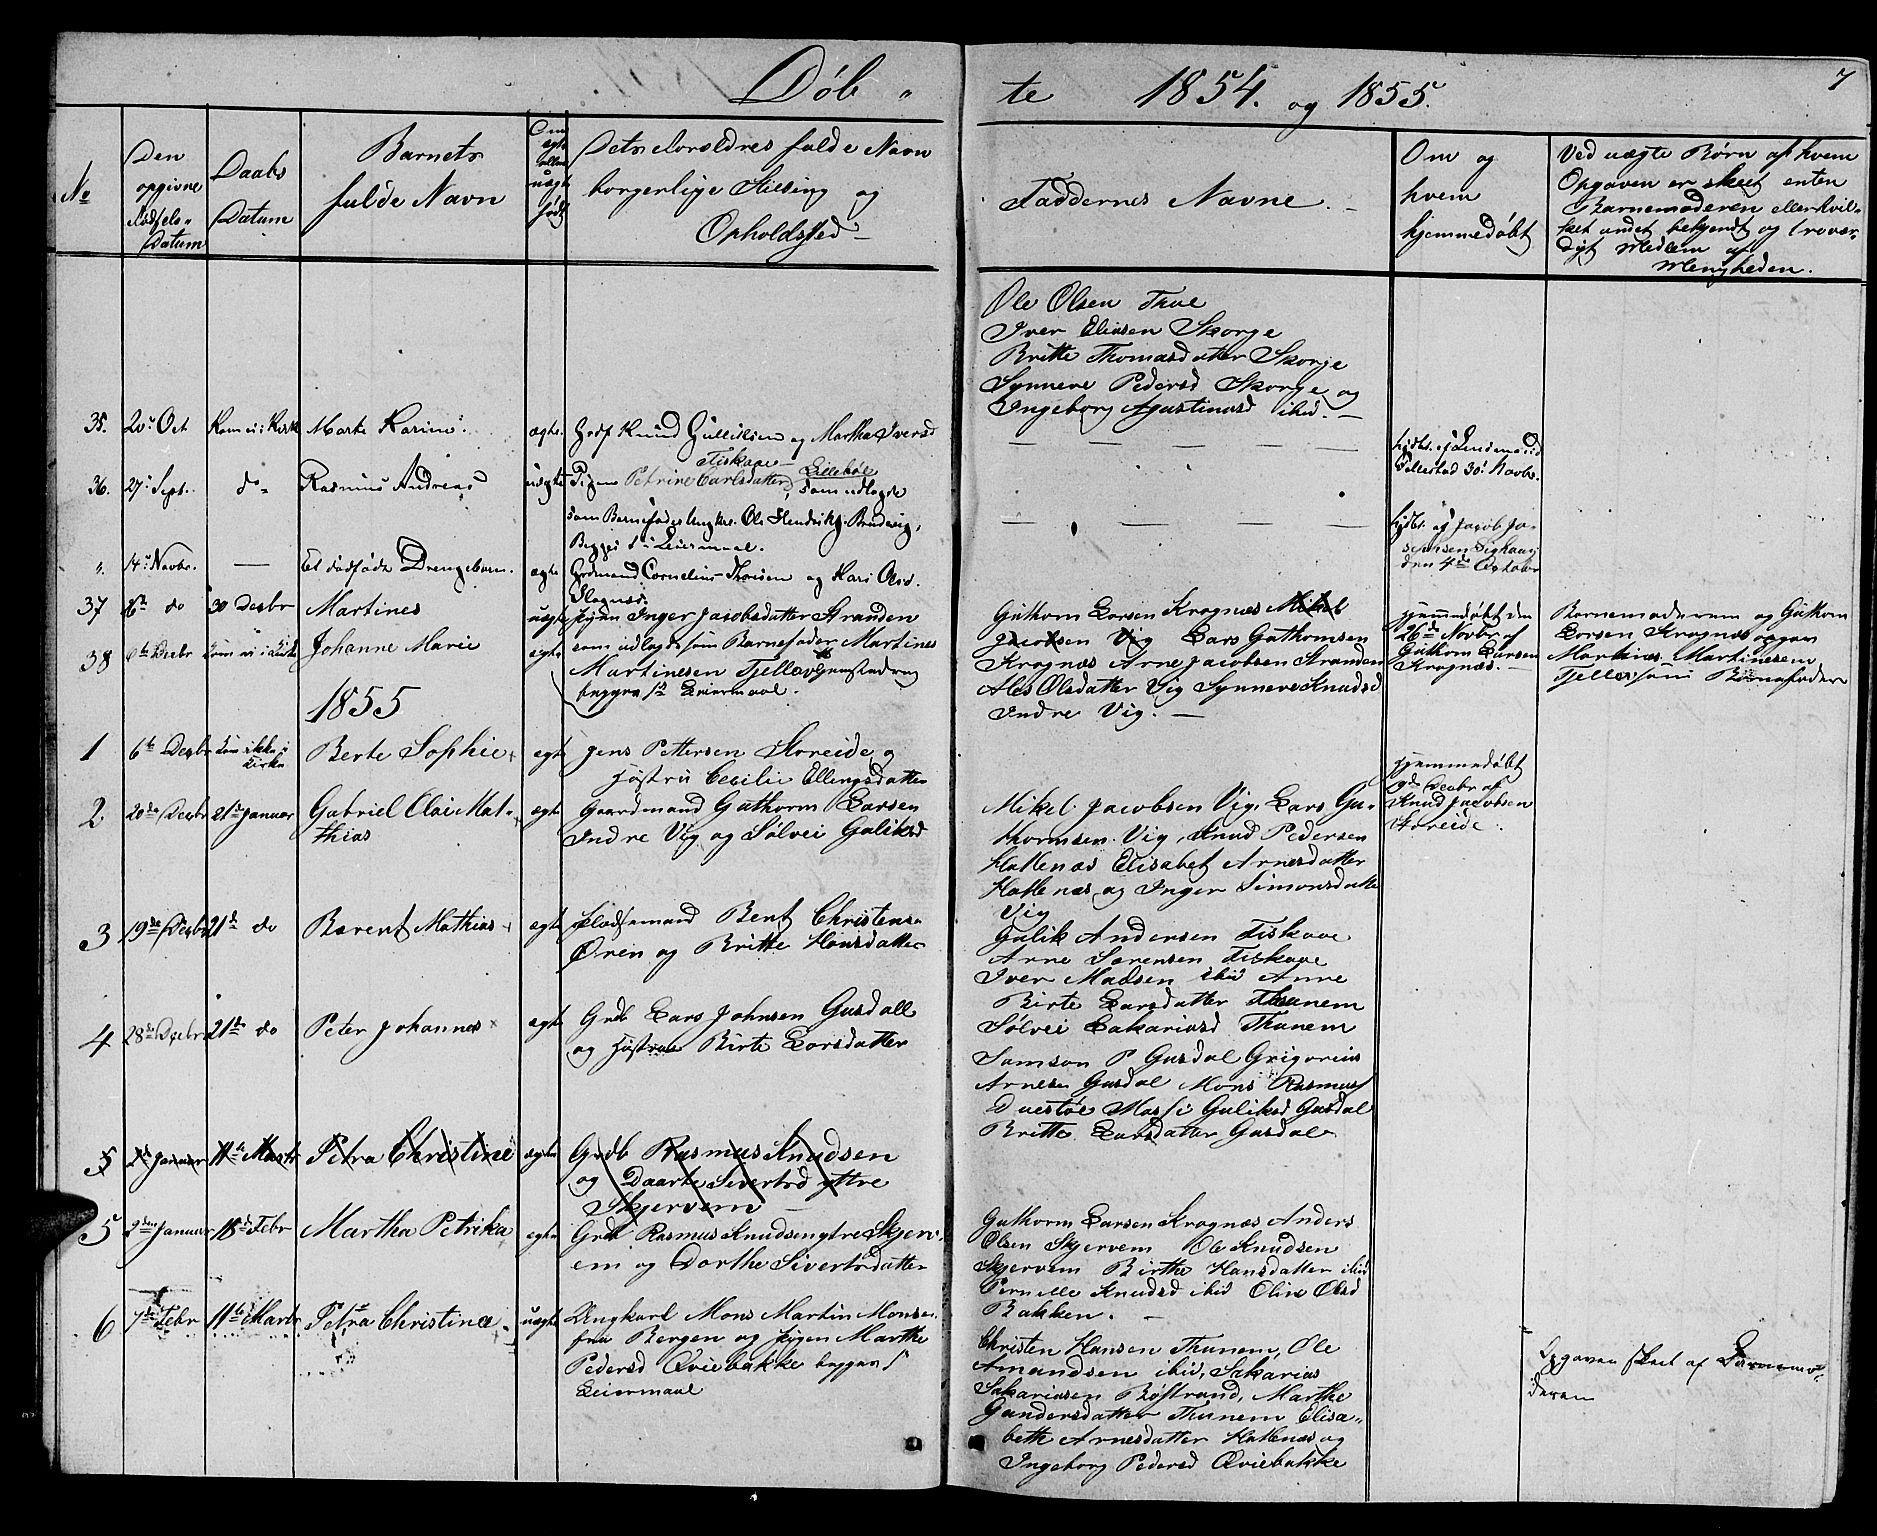 Døb-
te 1854. og 1855.
7
No
Den
opgivne
Fødsels-
Datum
Daabs
Datum
Barnets
fulde Navn
Om
ægte
eller
uægte
født
Dets Forældres fulde Navn
borgerlige Stilling og
Opholdsted
Faddernes Navne.
Om og
hvem
hjemmedøbt
Ved uægte Børn af hvem
Opgaven er skeet enten
Barnemoderen eller hvil-
ket andet bekjendt og trovær-
digt Medlem af
Menigheden.
Ole Olsen Thue
Iver Eliasen Skorge
Britte Thomasdatter Skorge
Synneve Pedersd Skorge og
Ingeborg Agustinusd ibid.
35. 20 Oct Kom ei i Kirke Marte Karine. ægte. Grdf Knud Gulliksen og Martha Iversd
Fiskaae
30t Novbr.
36. 27 Sept. do Rasmus Andreas uægte Pigen Petrine Carlsdatter Lillebøe
som udlagde
som Barnefader Ungkar. Ole Hendriks. Brudevig,
Begges 1ste Leiermaal.
Jacob Ja-
den 4de October
14 Novbr. — Et dødfødt Drengebarn. ægte Grdmand Cornelius Thorsen og Kari Olsd.
37 do 30 Decbr Martines uægte Pigen Inger Jacobsdatter Stranden
som udlagde som Barnefader Martines
Martinesen Tjellevig
begges 1ste Leiermaal.
Guthorm Larsen Kragnæs Mikel
Jacobsen Vig Lars Guthormsen
Kragnæs Arne Jacobsen Stranden
Ales Olsdatter Vig Synneve Knudsd
Indre Vig.
hjemmedøbt den
26de Novbr af
Guthorm Larsen
Kragnæs.
Barnemoderen og Guthorm
Larsen Kragnæs opgav
Martines Martinesen
Tjelle som Barnefader
38 6te Decbr Kom ei i Kirke Johanne Marie ægte
1855
1 6te Decbr Kom ikke i
Kirke Berte Sophie ægte Jens Pettersen Storeide og
Hustru Cecilie Ellingsdatter
hjemmedøbt
9de Decbr af
Knud Jacobsen
Storeide.
2. 20de Decbr 21de Januar Gabriel Olai Mat-
thias ægte Gaardmand Guthorm Larsen
Indre Vig og Sølvei Guliksd
Mikel Jacobsen Vig, Lars Gu-
thormsen Vig, Knud Pedersen
Hatlenæs Elisabet Arnesdatter
Hatlenæs og Inger Simonsdatter
Vig
3 19de Decbr 21de do Berent Mathias ægte Pladsemand Bent Christens.
Øren og Britte Hansdatter
Gulik Andersen Fiskaae
Arne Sørensen Fiskaae
Iver Madsen ibid Anne
Birte Larsdatter Thunem
Sølvei Sakariasd Thunem
4 28de Decbr 21de do Peter Johannes ægte Grdb Lars Johnsen Gusdall
og Hustrue Birte Larsdatter
Samson P Gusdal Grigorius
Arnesen Gusdal Mons Rasmus
Duestøl Massi Guliksd Gusdal
Britte Larsdatter Gusdal
5 2de Januar 11te Marts Petra Christine ægte Grdb Rasmus Knudsen
og Daarte Sivertsd yttre
Skjervem
5 2den Januar 18de Febr Martha Petrika ægte Grdb Rasmus Knudsen ytre Skjerv
em og Dorthe Sivertsdatter
Guthorm Larsen Kragnæs Anders
Olsen Skjervem Ole Knudsen
Skjervem Birthe Hansdatter ibid
Pernille Knudsd ibid Oline Olsd
Bakken.
6 7de Febr 11te Marts Petra Christine uægte Ungkarl Mons Martin Monsen
fra Bergen og Pigen Marthe
Pedersd Qviebakke begges 1
Leiermaal
Christen Hansen Thunem, Ole
Amandsen ibid, Sakarias
Sakariasen Bøstrand, Marthe
Gundersdatter Thunem Elisa-
beth Arnesdatter Hatlenæs og
Ingeborg Pedersd Qviebakke
Opgaven skeet af Barnemo-
deren